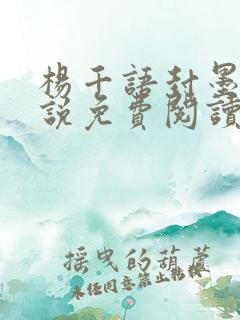 楊千語封墨
說免費閱讀
搖曳的葫蘆
未任同意禁止轉載